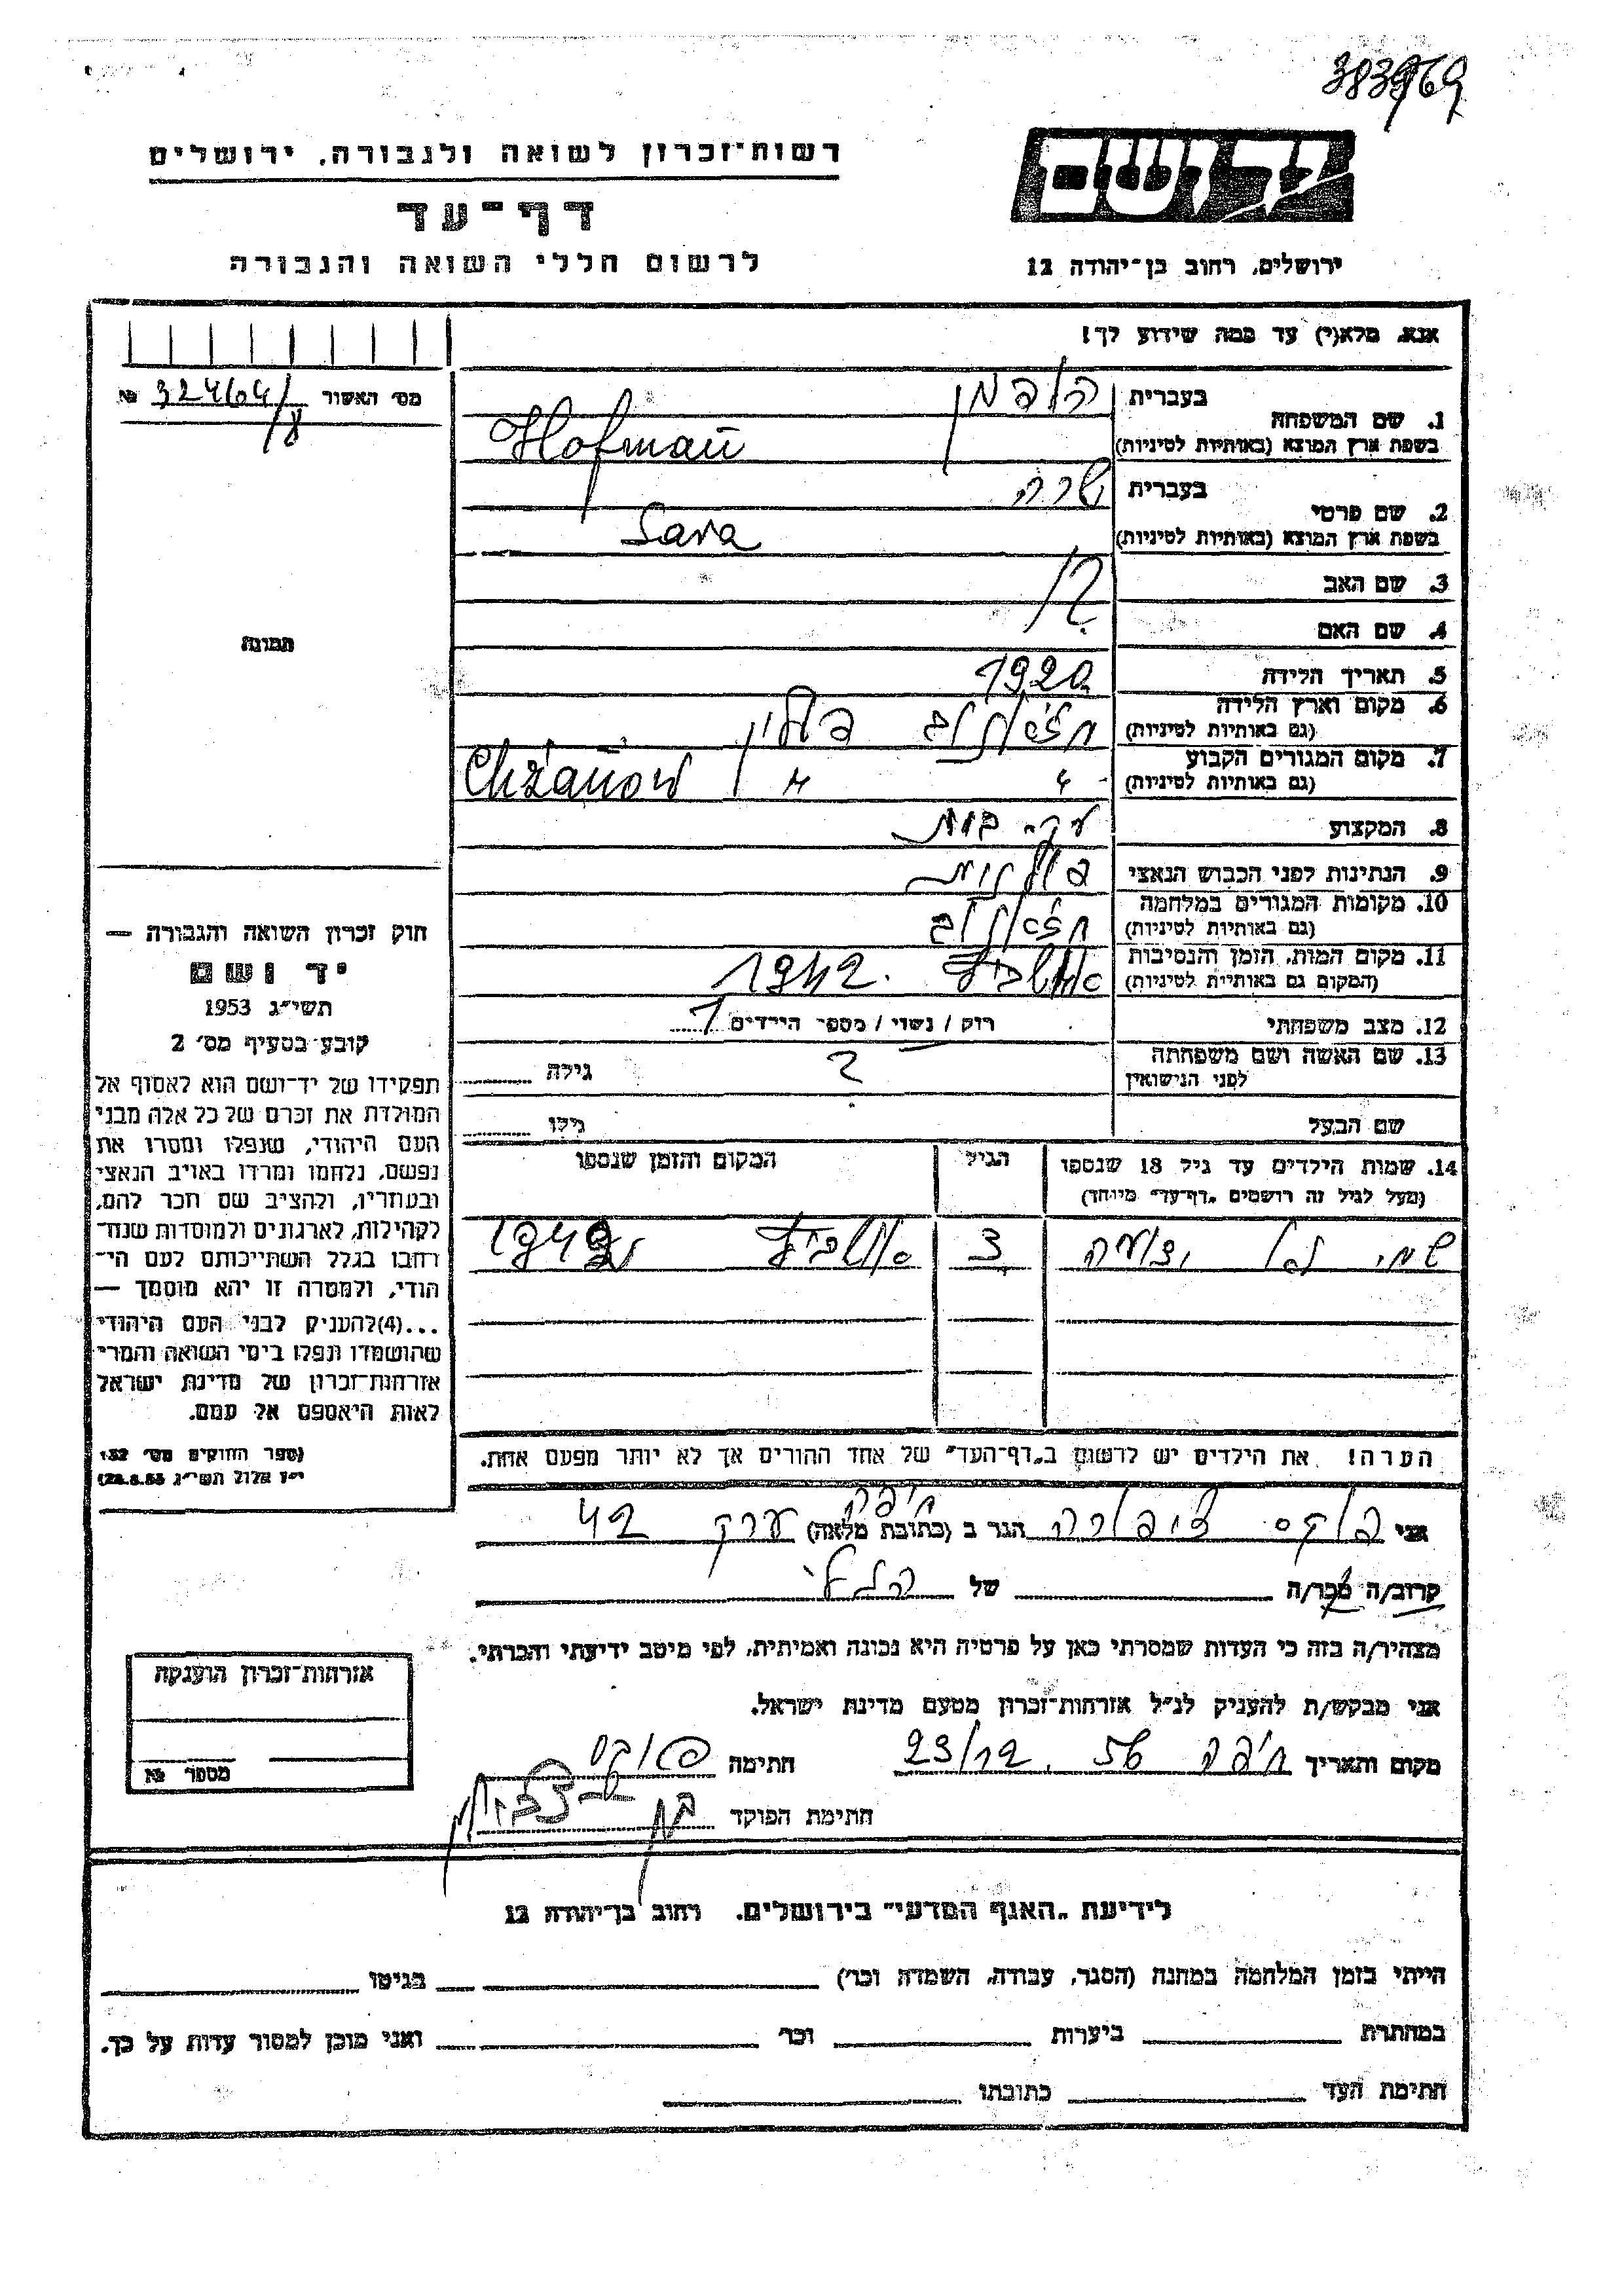 383969
רשות־זכרון לשואה ולגבורה, ירושלים
יד ושם
דף־עד
לרשום חללי השואה והגבורה
ירושלים, רחוב בן־יהודה 12
אנא, מלא(י) עד כמה שידוע לך!
מס׳ האשור № 32464/8
תמונה
בעברית הופמן
1. שם המשפחה
בשפת ארץ המוצא (באותיות לטיניות) Hofman
בעברית שרה
2. שם פרטי
בשפת ארץ המוצא (באותיות לטיניות) Sara
3. שם האב
4. שם האם
5. תאריך הלידה 1920
6. מקום וארץ הלידה
(גם באותיות לטיניות) פולין
7. מקום המגורים הקבוע
(גם באותיות לטיניות) " " Chżanow
8. המקצוע עק. בית
9. הנתינות לפני הכבוש הנאצי פולנית
10. מקומות המגורים במלחמה
(גם באותיות לטיניות)
11. מקום המות, הזמן והנסיבות
(המקום גם באותיות לטיניות) 1942.
12. מצב משפחתי רוק / נשוי / מספר הילדים 1
13. שם האשה ושם משפחתה
לפני הנישואין ? גילה
שם הבעל גילו
14. שמות הילדים עד גיל 18 שנספו
(מעל לגיל זה רושמים "דף־עד" מיוחד)
הגיל
המקום והזמן שנספו
3 1942
הערה! את הילדים יש לרשום ב"דף־העד" של אחד ההורים אך לא יותר מפעם אחת.
חוק זכרון השואה והגבורה —
יד ושם
תשי״ג 1953
קובע בסעיף מס׳ 2
תפקידו של יד־ושם הוא לאסוף אל
המולדת את זכרם של כל אלה מבני
העם היהודי, שנפלו ומסרו את
נפשם, נלחמו ומרדו באויב הנאצי
ובעוזריו, ולהציב שם וזכר להם,
לקהילות, לארגונים ולמוסדות שנח־
רחבו בגלל השתייכותם לעם הי־
הודי, ולמטרה זו יהא מוסמך —
...(4)להעניק לבני העם היהודי
שהושמדו ונפלו בימי השואה והמרי
אזרחות־זכרון של מדינת ישראל
לאות היאספם אל עמם.
(ספר החוקים מס׳ 132
י״ז אלול תשי״ג 28.8.53)
אני פוקס ציפורה הגר ב (כתובת מלאה) חיפה 42
קרוב/ה מכר/ה של
מצהיר/ה בזה כי העדות שמסרתי כאן על פרטיה היא נכונה ואמיתית, לפי מיטב ידיעתי והכרתי.
אני מבקש/ת להעניק לנ״ל אזרחות־זכרון מטעם מדינת ישראל.
מקום ותאריך חיפה 23/12 56. חתימה פוקס
חתימת הפוקד
אזרחות־זכרון הוענקה
מספר №
לידיעת "האגף המדעי" בירושלים, רחוב בן־יהודה 12
הייתי בזמן המלחמה במחנה (הסגר, עבודה, השמדה וכר׳) בגיטו
במחתרת ביערות וכר׳ ואני מוכן למסור עדות על כך.
חתימת העד כתובתו